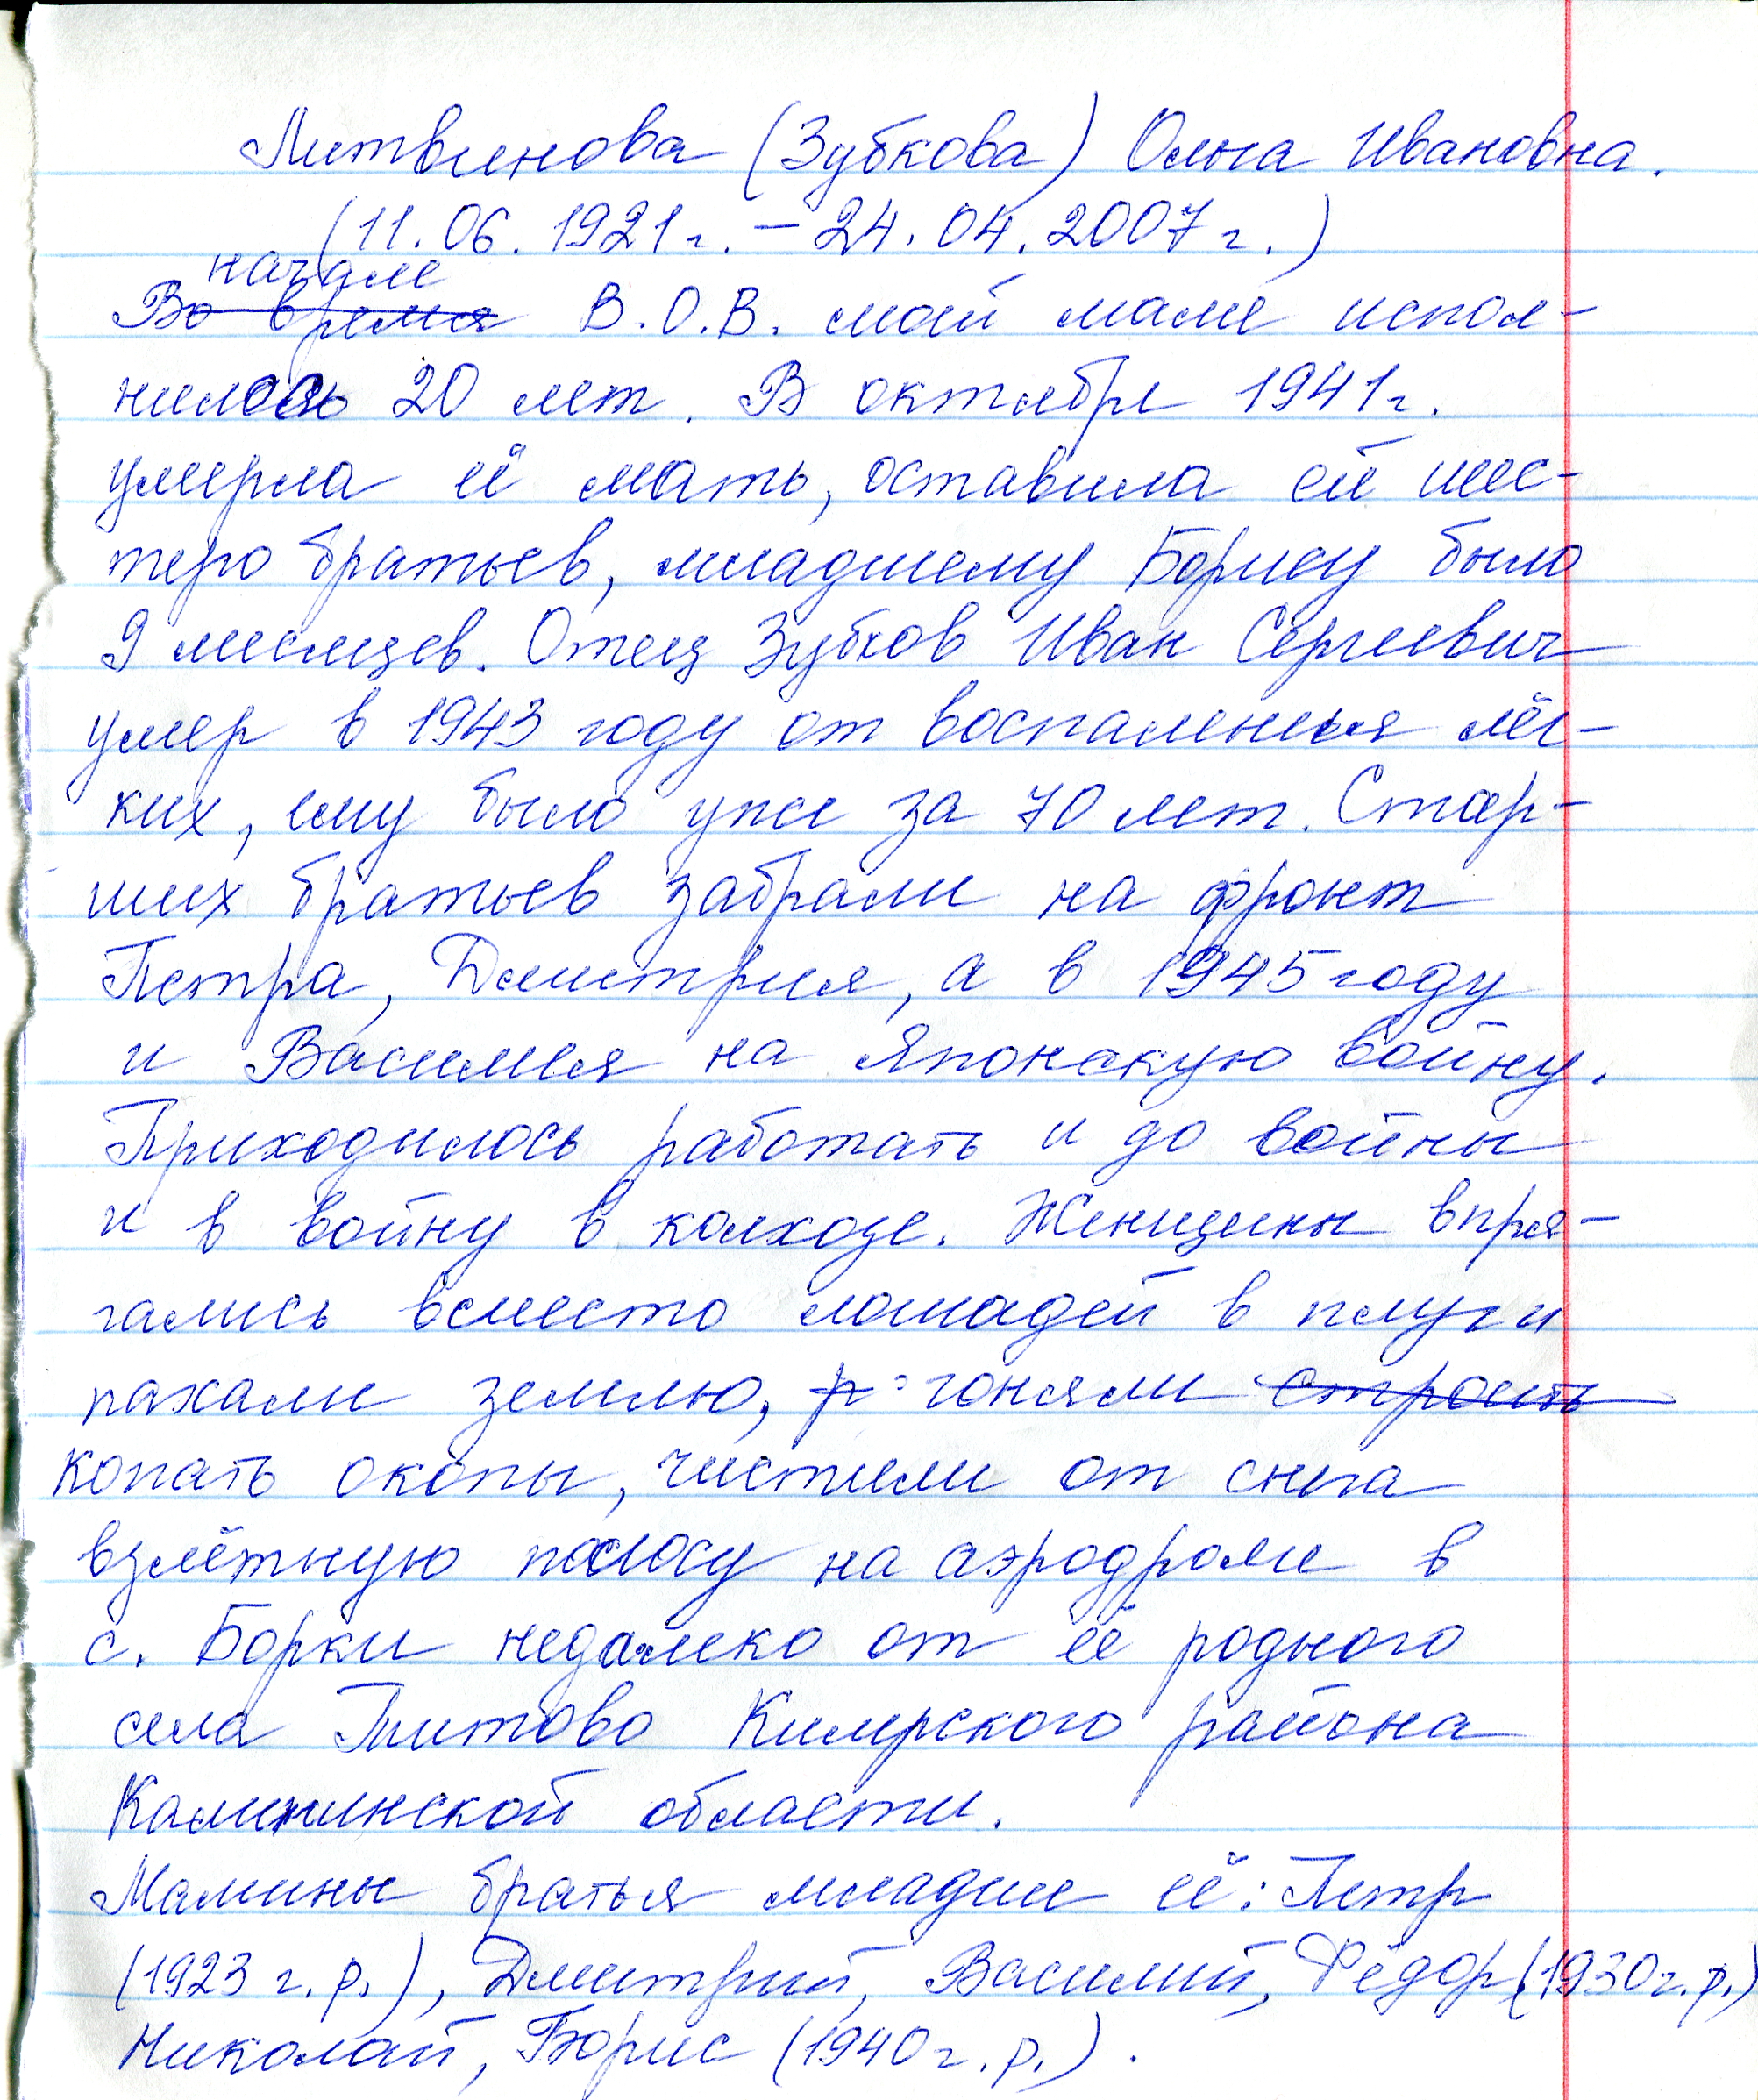 Литвинова (Зубкова) Ольга Ивановна.
(11.06.1921г. – 24.04.2007г.)
начале
Во время В.О.В. моей маме испол-
нилось 20 лет. В октябре 1941г.
умерла её мать, оставила ей шес-
теро братьев, младшему Борису было
9 месяцев. Отец Зубков Иван Сергеевич
умер в 1943 году от воспаления лёг-
ких, ему было уже за 70 лет. Стар-
ших братьев забрали на фронт
Петра, Дмитрия, а в 1945 году
и Василия на Японскую войну.
Приходилось работать и до войны
и в войну в колхозе. Женщины впря-
гались вместо лошадей в плуг и
пахали землю, р гоняли строить
копать окопы, чистили от снега
взлётную полосу на аэродроме в
с. Борки недалеко от её родного
села Титово Кимрского района
Калининской области.
Мамины братья младше её: Петр
(1923 г.р.), Дмитрий, Василий, Фёдор (1930г.р.)
Николай, Борис (1940г.р.).